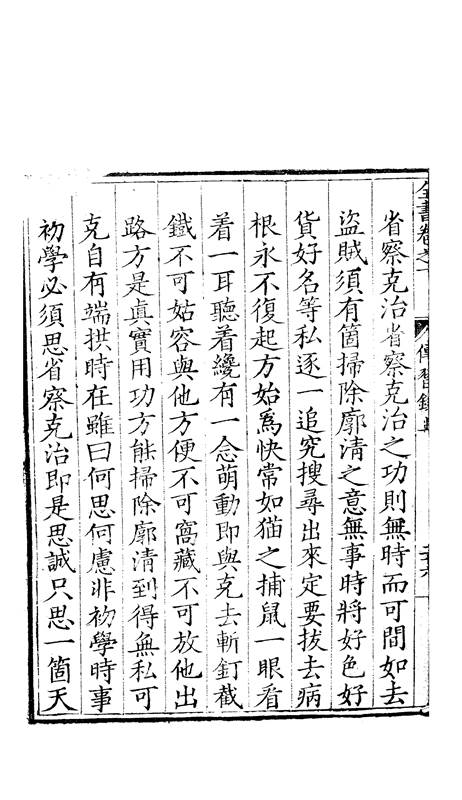 省察克治省察克治之功則無時而可間如去
盜賊須有箇掃除廓清之意無事時將好色好
貨好名等私逐一追究搜尋出來定要拔去病
根永不復起方始爲快常如猫之捕鼠一眼看
着一耳聽着纔有一念萌動即與克去斬釘截
鐵不可姑容與他方便不可窩藏不可放他出
路方是真實用功方能掃除廓清到得無私可
克自有端拱時在雖曰何思何慮非初學時事
初學必須思省察克治即是思誠只思一箇天